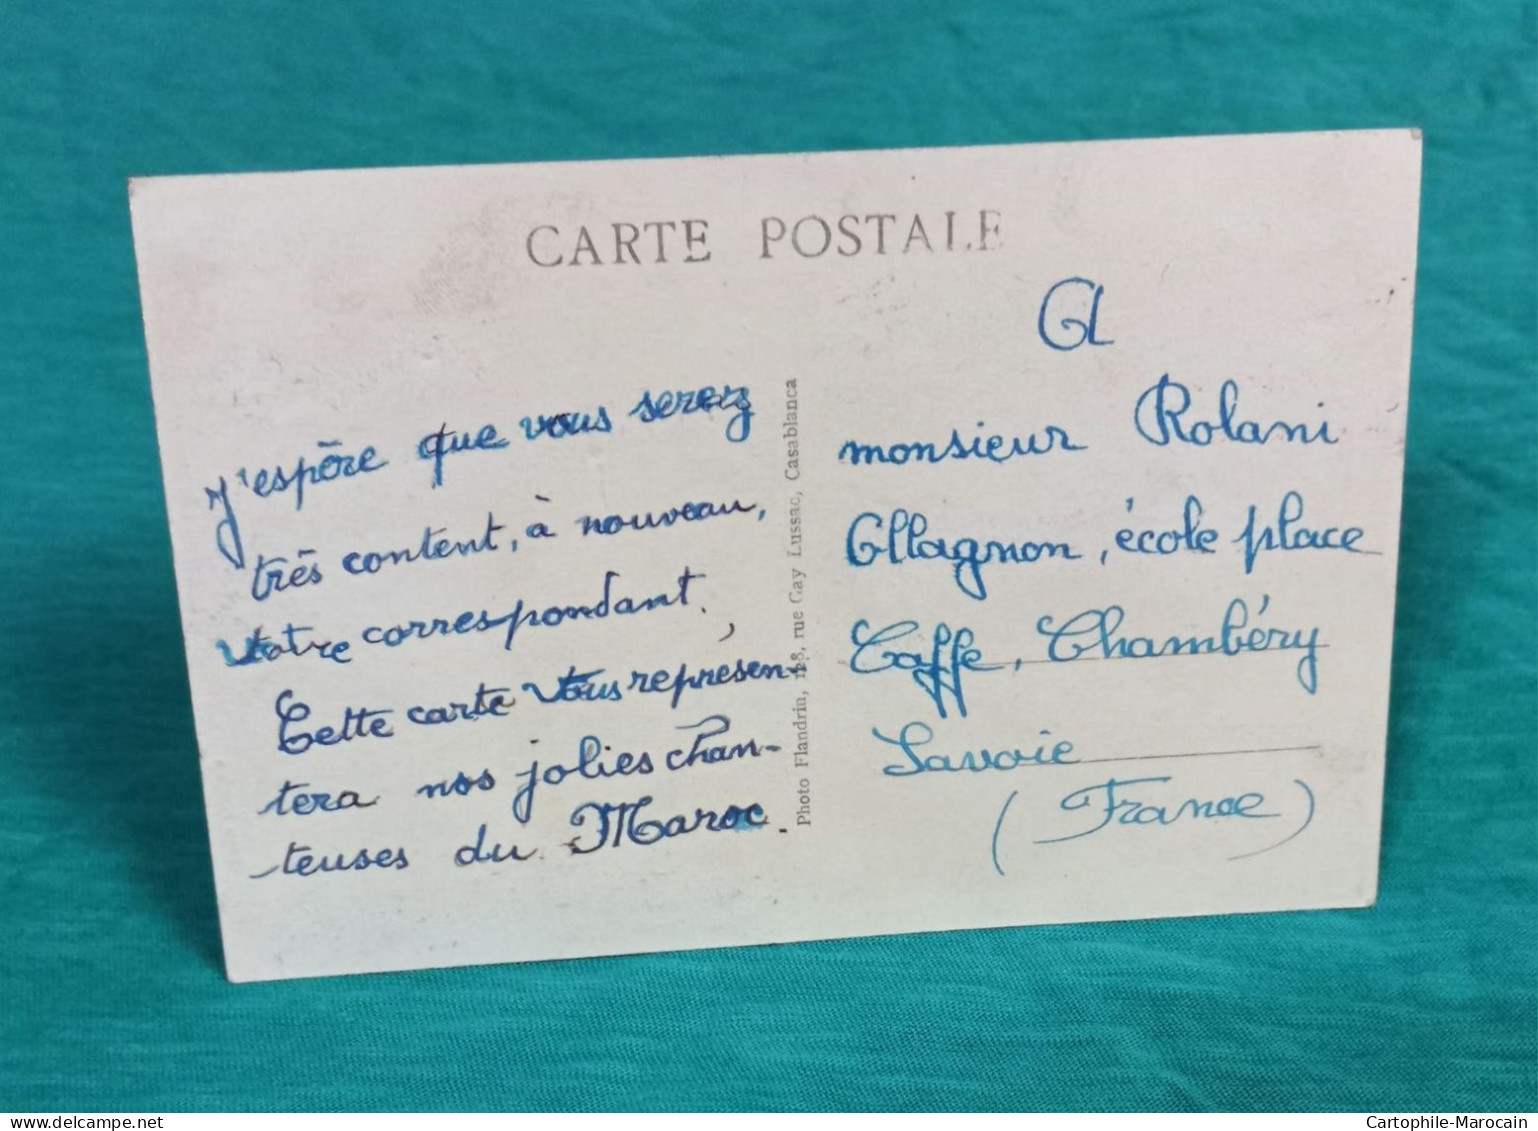 CARTE POSTALE
J'espère que vous serez
très content, à nouveau,
votre correspondant.
Cette carte vous représen-
tera nos jolies chan-
teuses du Maroc.
Photo Flandrin, 128, rue Gay Lussac, Casablanca
A
monsieur Rolani
Allagnon, école place
Caffe, Chambéry
Savoie
(France)
Cartophile-Marocain